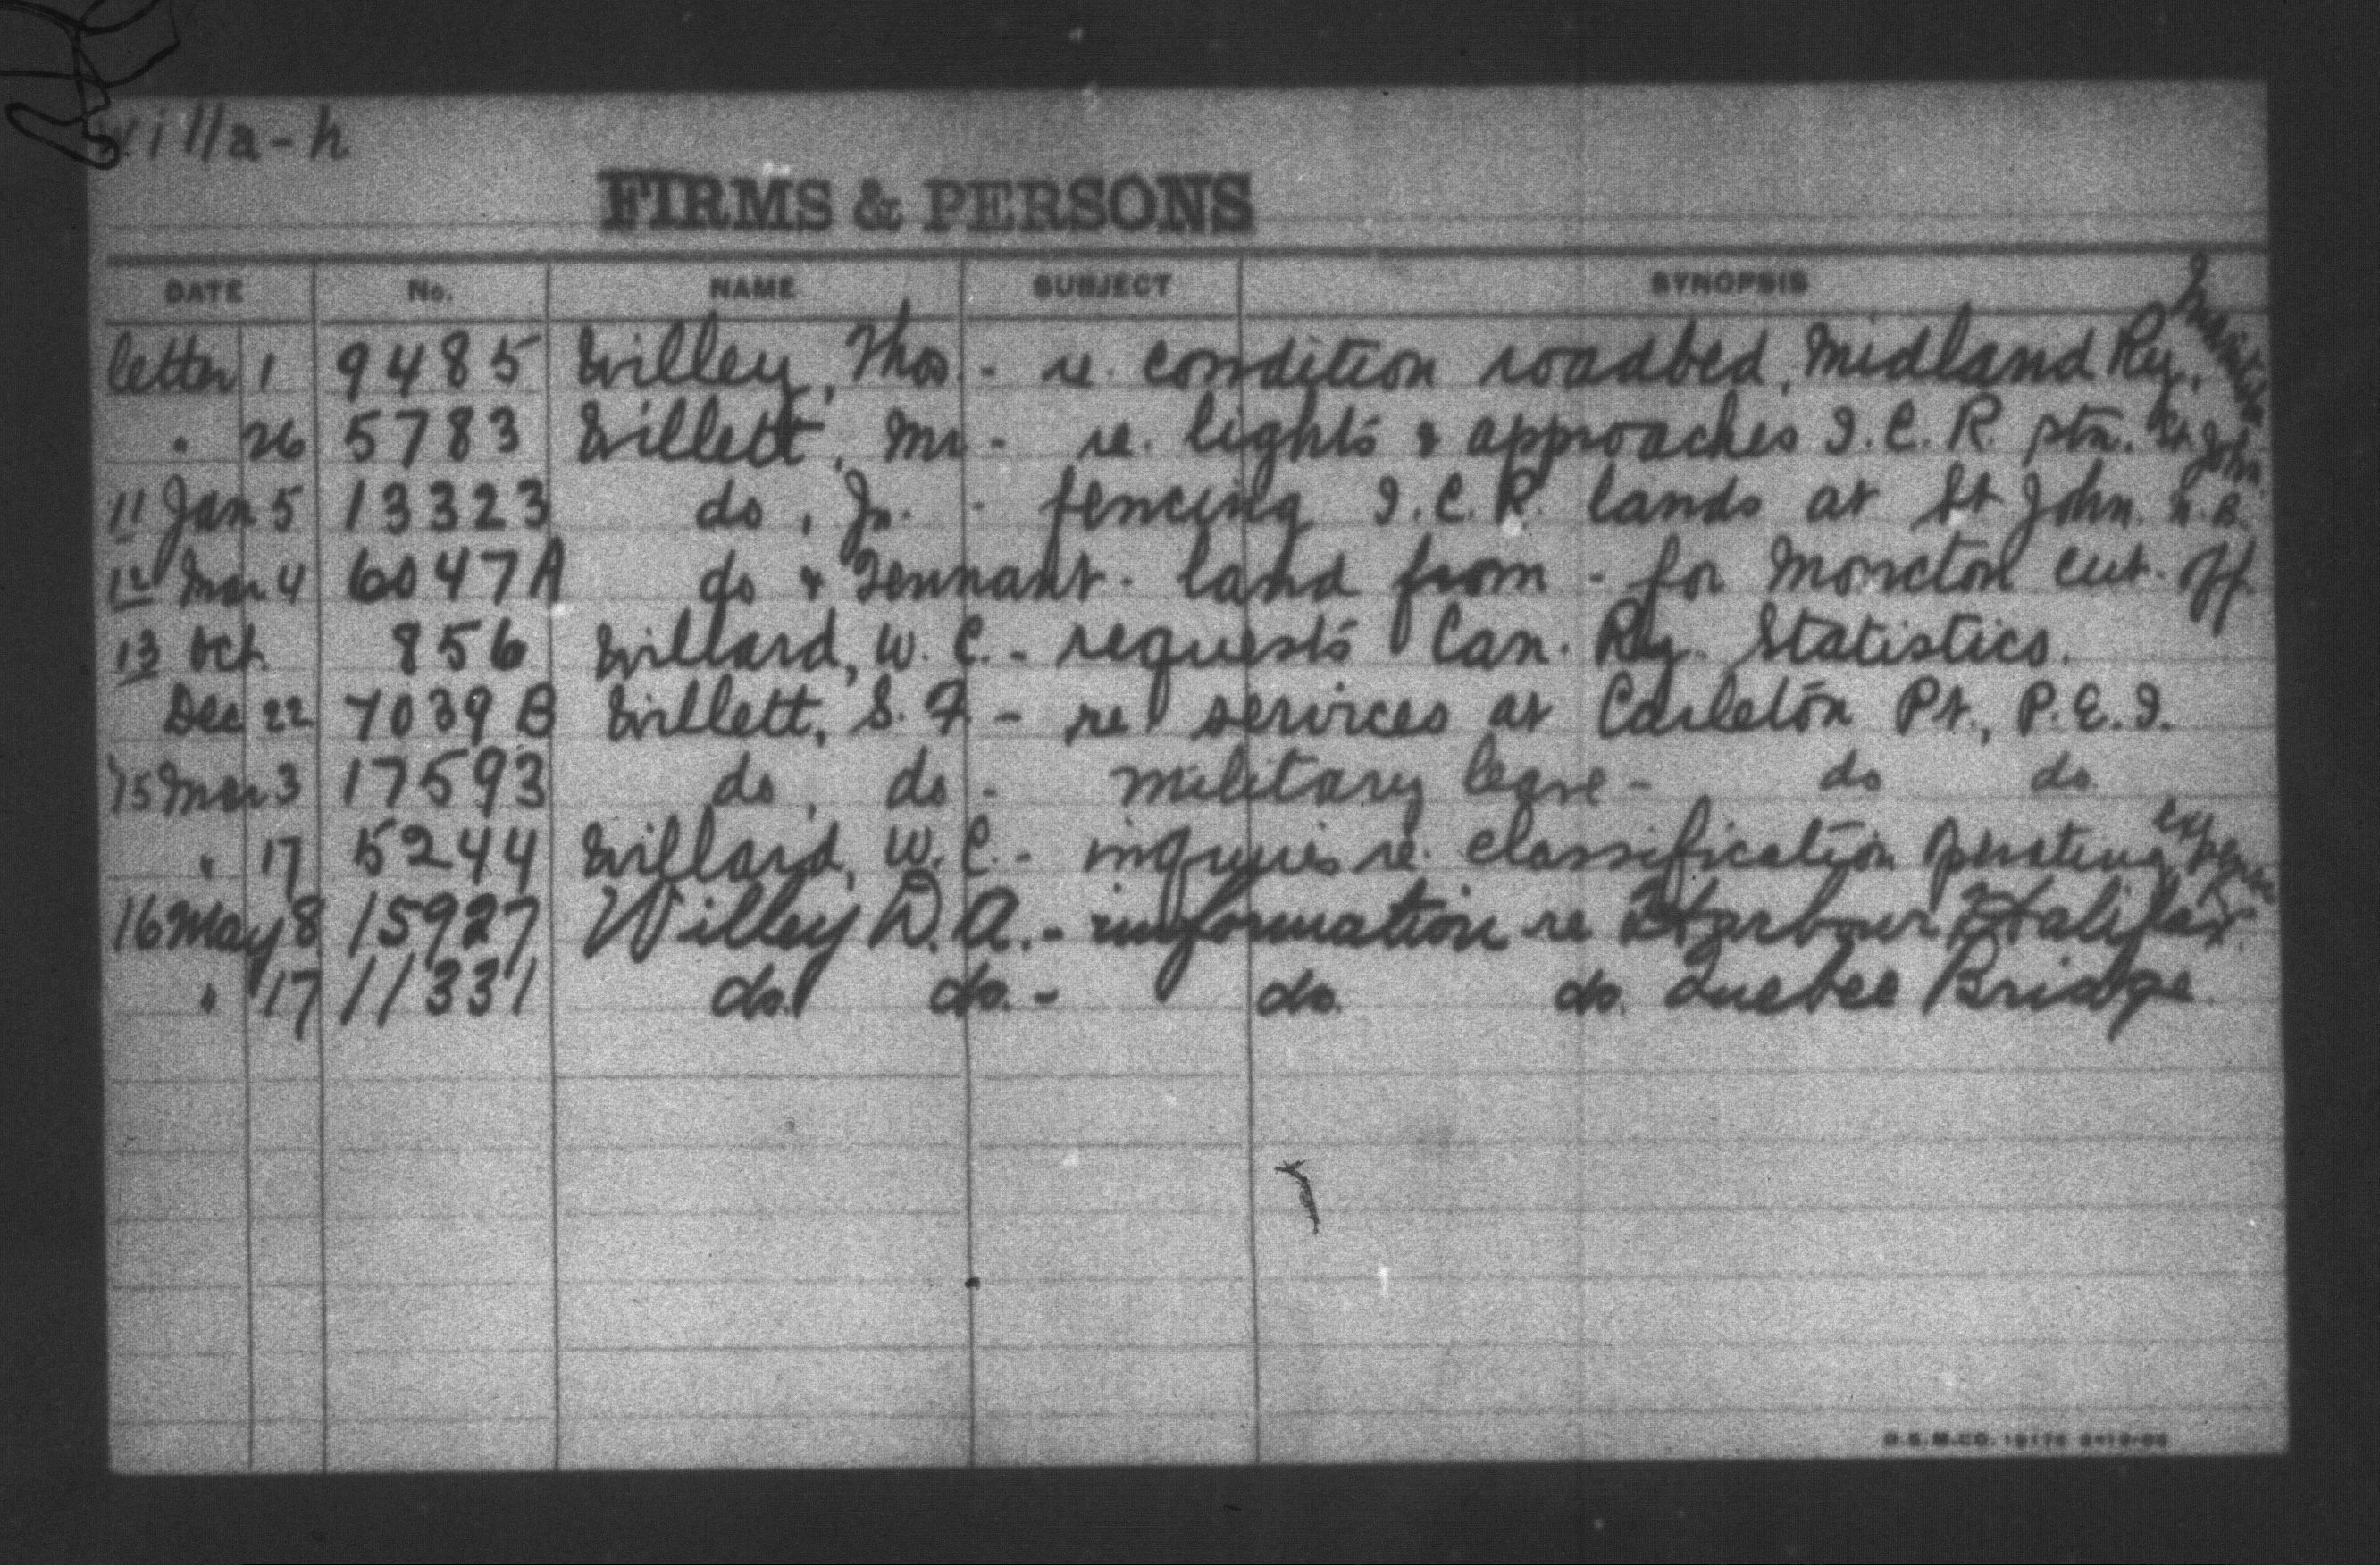 Willa-h
FIRMS & PERSONS
DATE No. NAME SUBJECT SYNOPSIS
letter 1 9485 Willey, Thos. - re. condition roadbed, Midland Ry. Manitoba
" 26 5783 Willett, Mr - re. lights & approaches I.C.R. stn. St. John
11 Jan 5 13323 do, Jr. - fencing I.C.R. lands at St John N.B.
12 Mar 4 6047A do & Tennant - land from - for Moncton cut-off
13 Oct. 856 Willard, W. C. - requests Can. Ry. Statistics.
Dec 22 7039 B Willett, S. F. - re services at Carleton Pt., P.E.I.
15 Mar 3 17593 do, do - military leave - do do
" 17 5244 Willard, W. C. - inquires re. classification operating expenses
16 May 8 15927 Willey D. A. - information re Harbour Halifax.
" 17 11331 do. do. - do. do. Quebec Bridge.